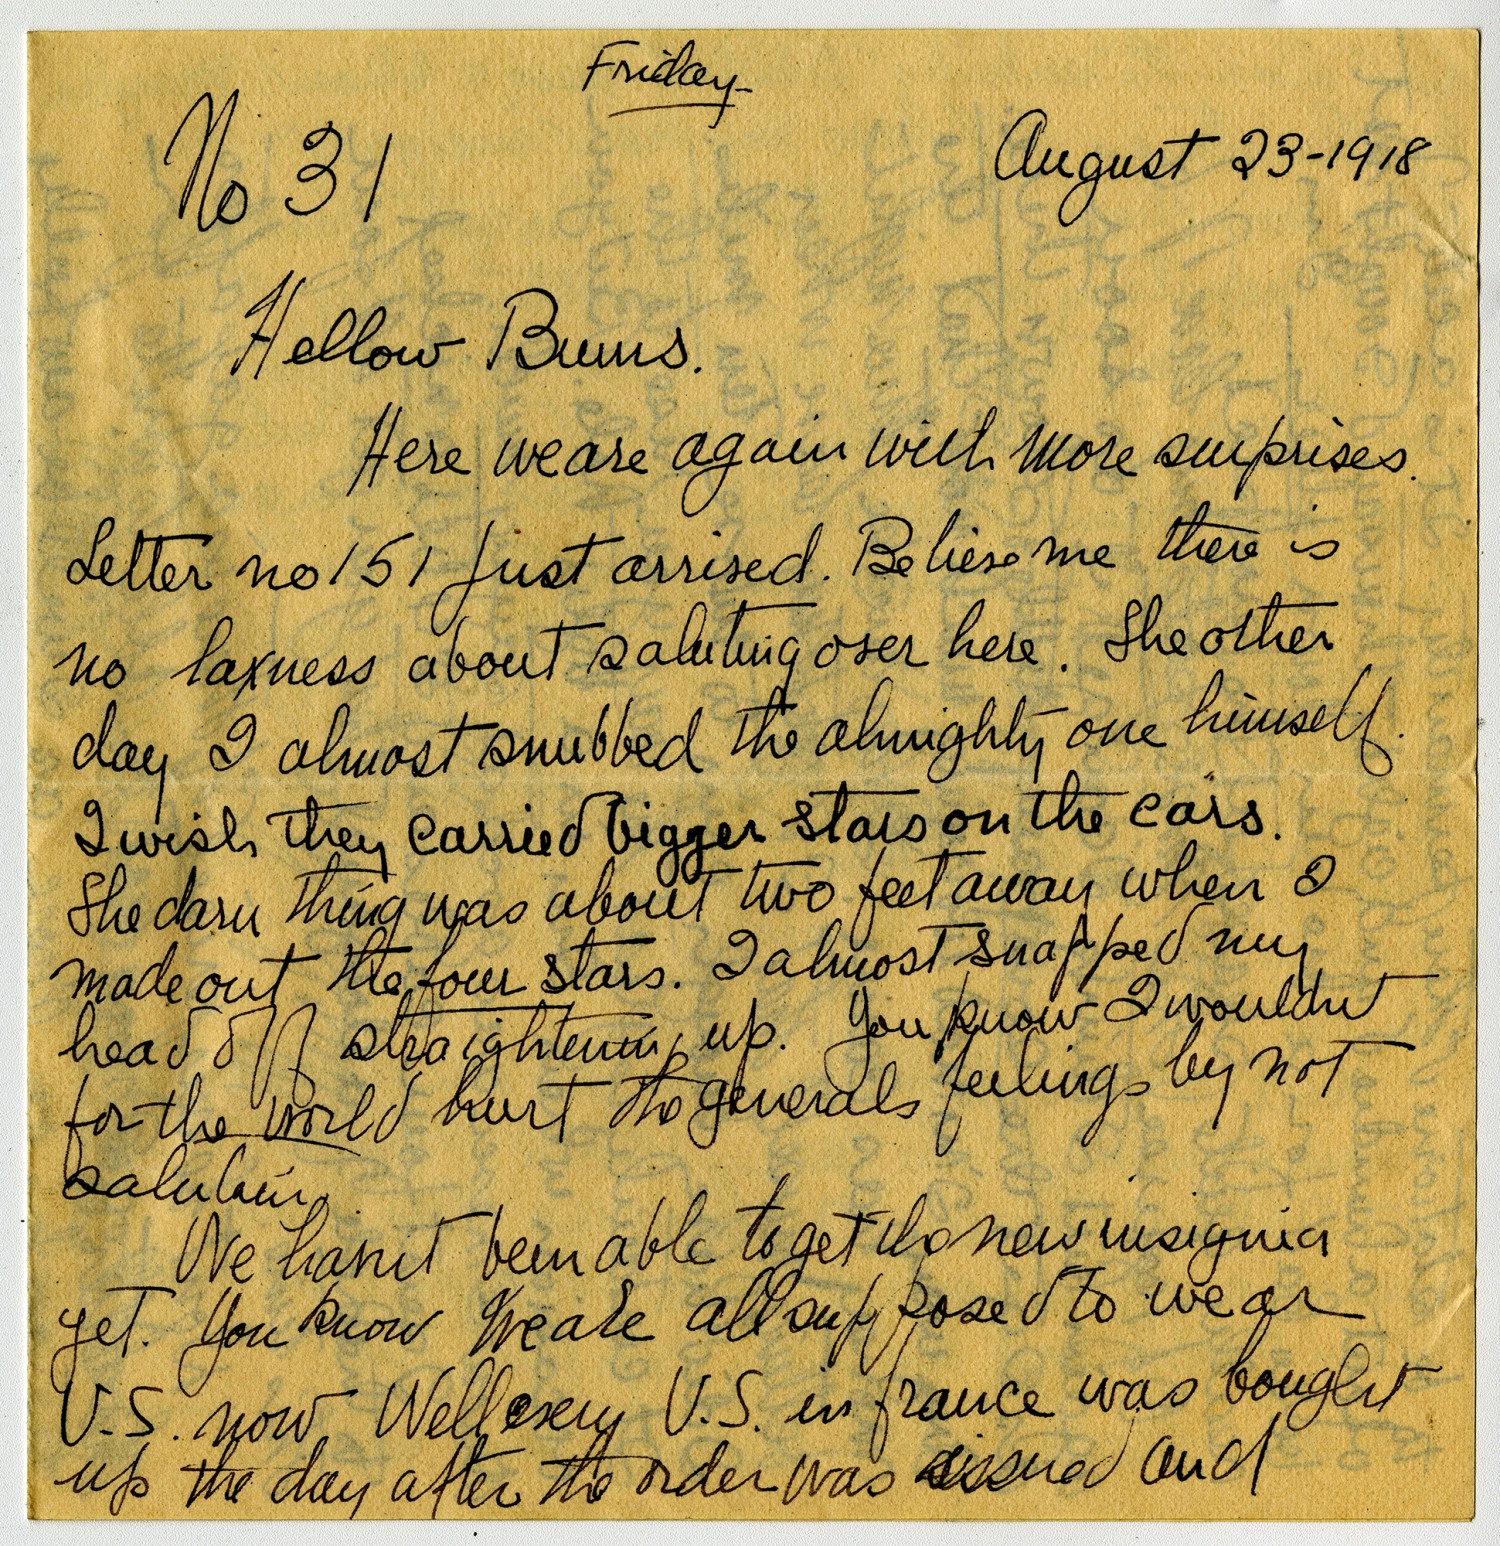 Friday
No 31
August 23-1918
Hellow Bums.
Here we are again with more surprises.
Letter no 151 just arrived. Believe me there is
no laxness about saluting over here. The other
day I almost snubbed the almighty one himself.
I wish they carried bigger stars on the cars.
The darn thing was about two feet away when I
made out the four stars. I almost snapped my
head off straightenin, up. You know I wouldnt
for the world hurt the generals feelings by not
salutin,
We havnt been able to get the new insignia
yet. You know we are all supposed to wear
U.S. now Well every U.S. in france was bought
up the day after the order was issued and